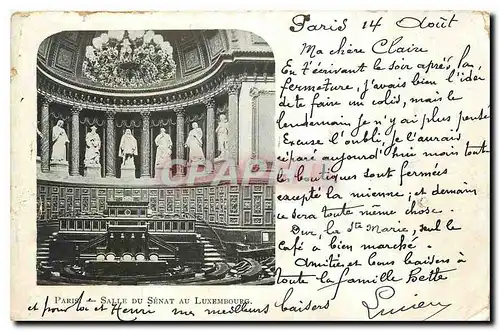 Paris 14 Août
Ma chère Claire
En t'écrivant le soir après la
fermeture, j'avais bien l'idée
de te faire un colis, mais le
lendemain je n'y ai plus pensé
Excuse l'oubli, je l'aurais
réparé aujourd'hui mais toute
les boutiques sont fermées
excepté la mienne; et demain
ce sera toute même chose.
Oui, la Ste Marie, seul le
café a bien marché.
Amitiés et bons baisers à
toute la famille Hette
Lucien
PARIS - SALLE DU SÉNAT AU LUXEMBOURG.
et pour toi et Henri mes meilleurs baisers
CPA